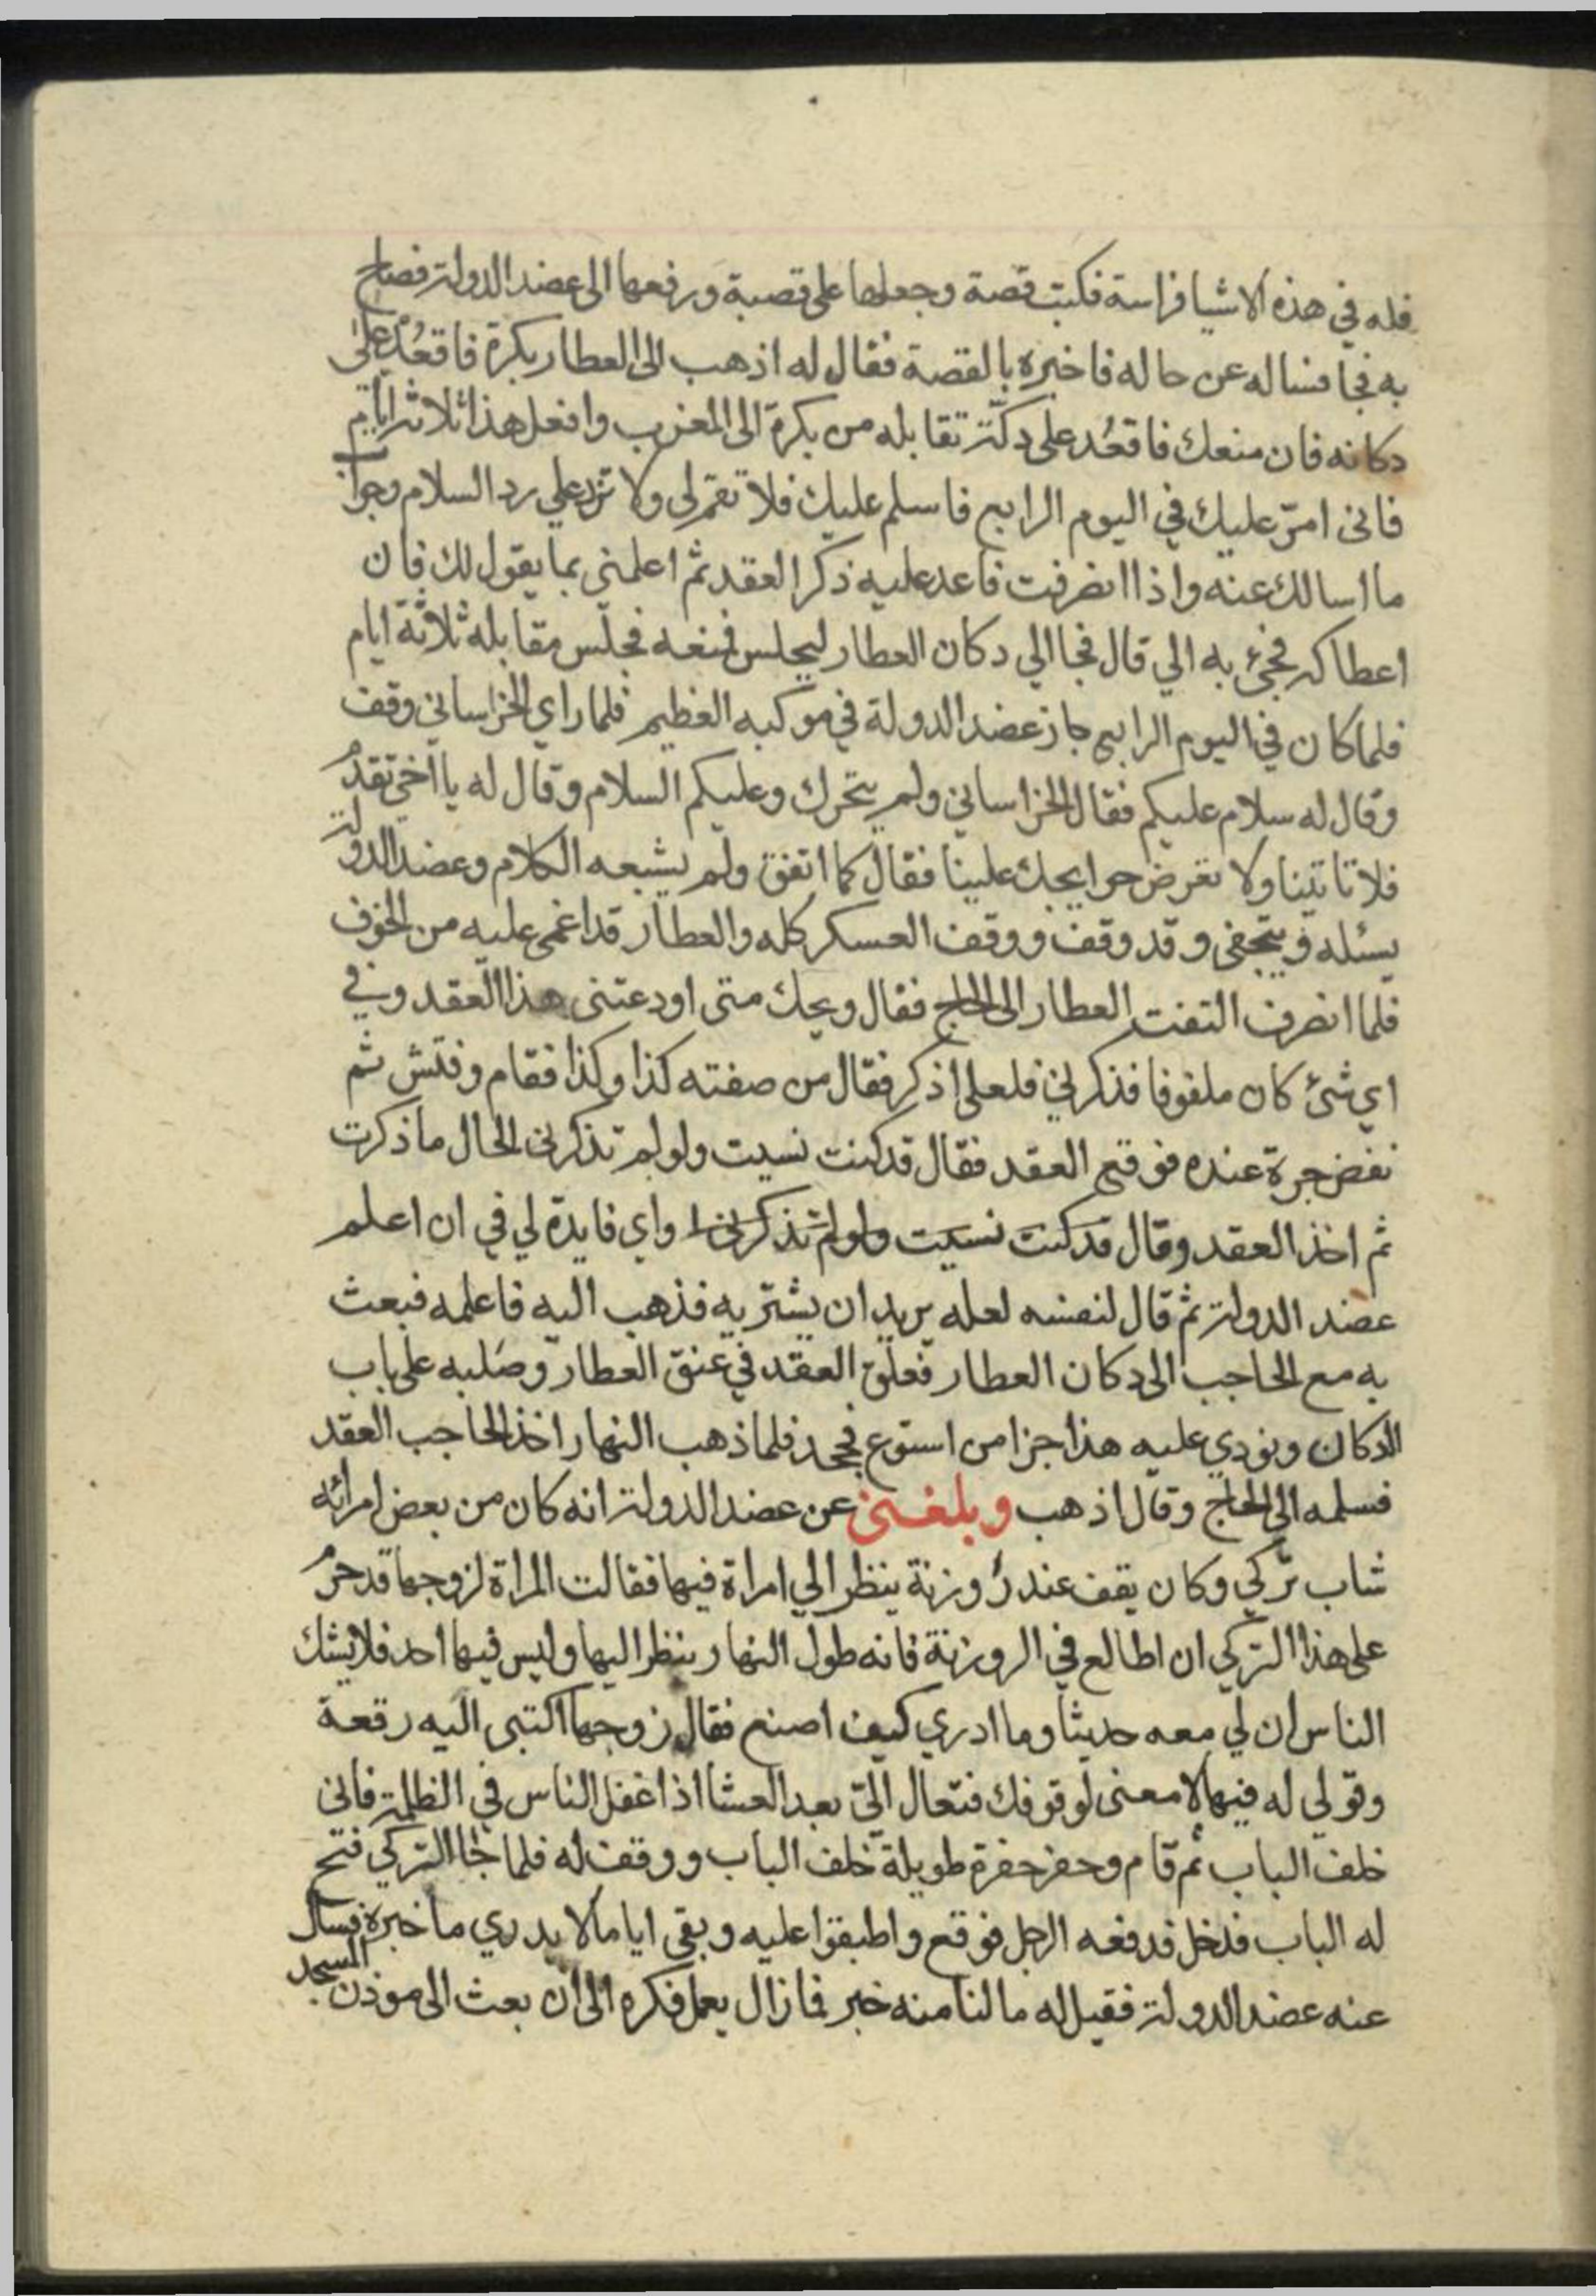 فله في هذه الاشيا فراسة فكتب قصة وجعلها على قصبة ورفعها الى عضد الدولة فصاح
به فجا فساله عن حاله فاخبره بالقصة فقال له اذهب الى العطار بكرة فاقعُد على
دكانه فان منعك فاقعُد على دكّة تقابله من بكرة الى المغرب وافعل هذا ثلاثة ايام
فانى امرّ عليك في اليوم الرابع فاسلم عليك فلا تقم لى ولا تزد علي رد السلام وجواب
ما اسالك عنه واذا انصرفت فاعد عليه ذكر العقد ثم اعلمنى بما يقول لك فان
اعطاكه فجىء به الي قال فجا الي دكان العطار ليجلس فمنعه فجلس مقابله ثلاثة ايام
فلما كان في اليوم الرابع جاز عضد الدولة في موكبه العظيم فلما راى الخراسانى وقف
وقال له سلام عليكم فقال الخراسانى ولم يتحرك وعليكم السلام وقال له يا اخي تقدم
فلا تاتينا ولا تعرض حوايجك علينا فقال كما اتفق ولم يشبعه الكلام وعضد الدولة
يسئله ويتحفى وقد وقف ووقف العسكر كله والعطار قد اغمى عليه من الخوف
فلما انصرف التفت العطار الى الحاج فقال ويحك متى اودعتنى هذا العقد وفي
اي شئ كان ملفوفا فذكرني فلعلى اذكر فقال من صفته كذا وكذا فقام وفتش ثم
نفض جرة عنده فوقع العقد فقال قد كنت نسيت ولو لم تذكرنى الحال ما ذكرت
ثم اخذ العقد وقال قد كنت نسيت ولو لم تذكرنى ا واي فايدة لي في ان اعلم
عضد الدولة ثم قال لنفسه لعله يريد ان يشتريه فذهب اليه فاعلمه فبعث
به مع الحاجب الى دكان العطار فعلق العقد في عنق العطار وصلبه على باب
الدكان ونودي عليه هذا جزا من استوع فجحد فلما ذهب النهار اخذ الحاجب العقد
فسلمه الى الحاج وقال اذهب وبلغنى عن عضد الدولة انه كان من بعض امرائه
شاب تركي وكان يقف عند رُوزنة ينظر الي امراة فيها فقالت المراة لزوجها قد حرم
على هذا التركي ان اطالع في الروزنة فانه طول النهار ينظر اليها وليس فيها احد فلا يشك
الناس ان لي معه حديثا وما ادري كيف اصنع فقال زوجها اكتبى اليه رقعة
وقولى له فيها لا معنى لوقوفك فتعال الىّ بعد العشا اذا غفل الناس في الظلمة فانى
خلف الباب ثم قام وحفر حفرة طويلة خلف الباب ووقف له فلما جا التركي فتح
له الباب فدخل فدفعه الرجل فوقع واطبقوا عليه وبقى اياما لا يدري ما خبره فسال
عنه عضد الدولة فقيل له ما لنا منه خبر فما زال يعمل فكره الى ان بعث الى موذن المسجد